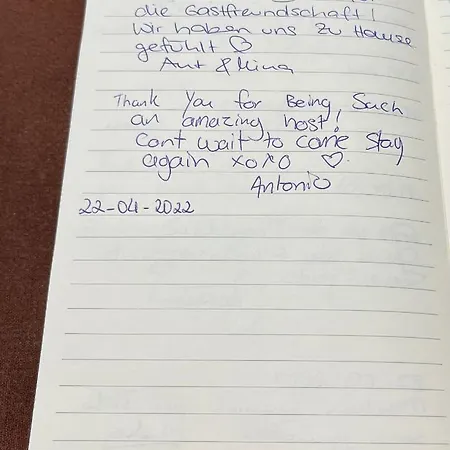 die Gastfreundschaft!
Wir haben uns zu Hause
gefühlt ♡
Thank You for Being Such
an amazing host!
Cant wait to come stay
again xoxo ♡
Antonio
22-04-2022